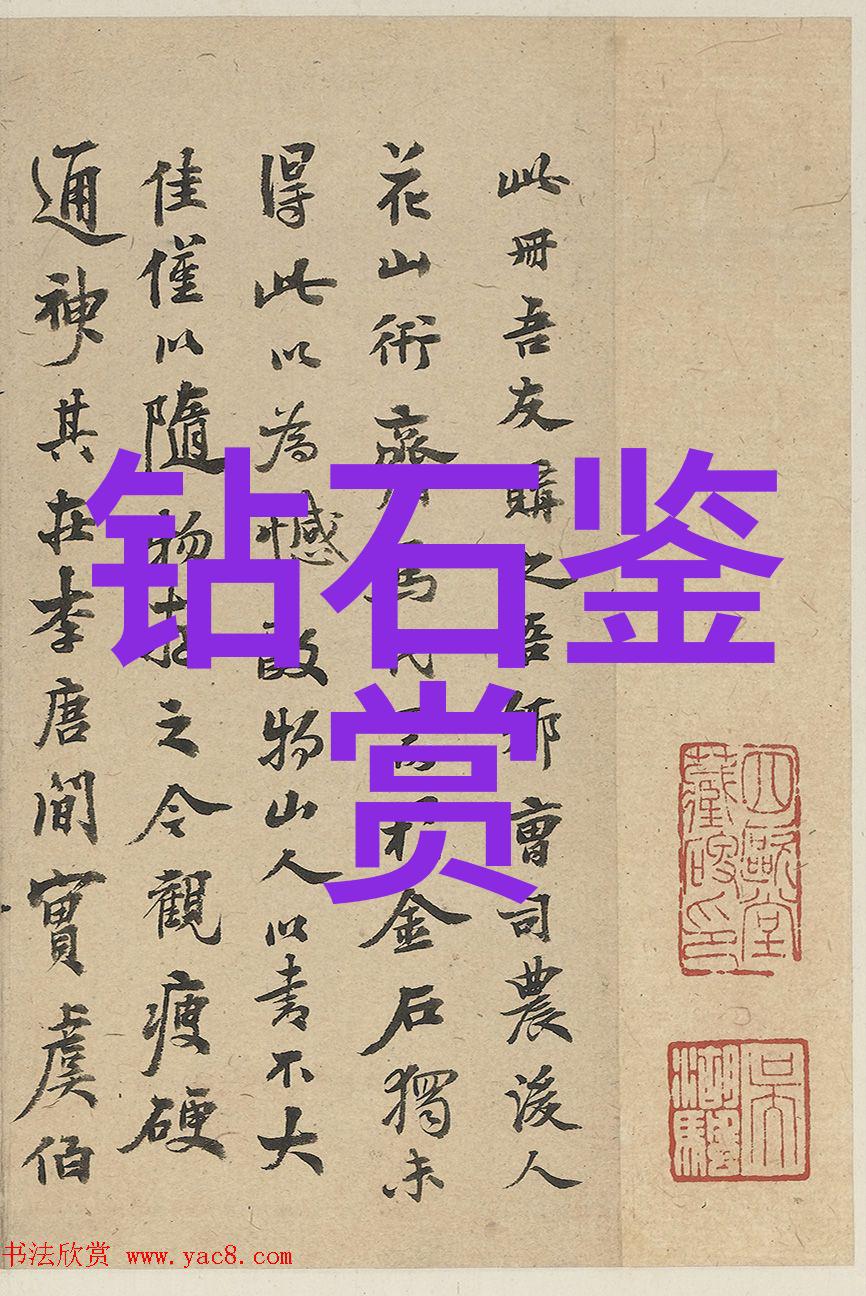 钻石鉴
赏
此冊吾友購之吾鄉曹司農後人
花山術齋金石獨未
得此以為憾故物山人以書不大
佳僅以隨物之今觀瘦硬
通神其在李唐間實虞伯
四歐堂
書法欣赏 www.yac8.com